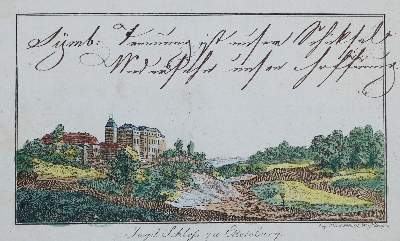 Symb: Trennung ist unser Schicksal
Wiedersehn unser Hoffnung
Jagd Schloss zu Ettersburg